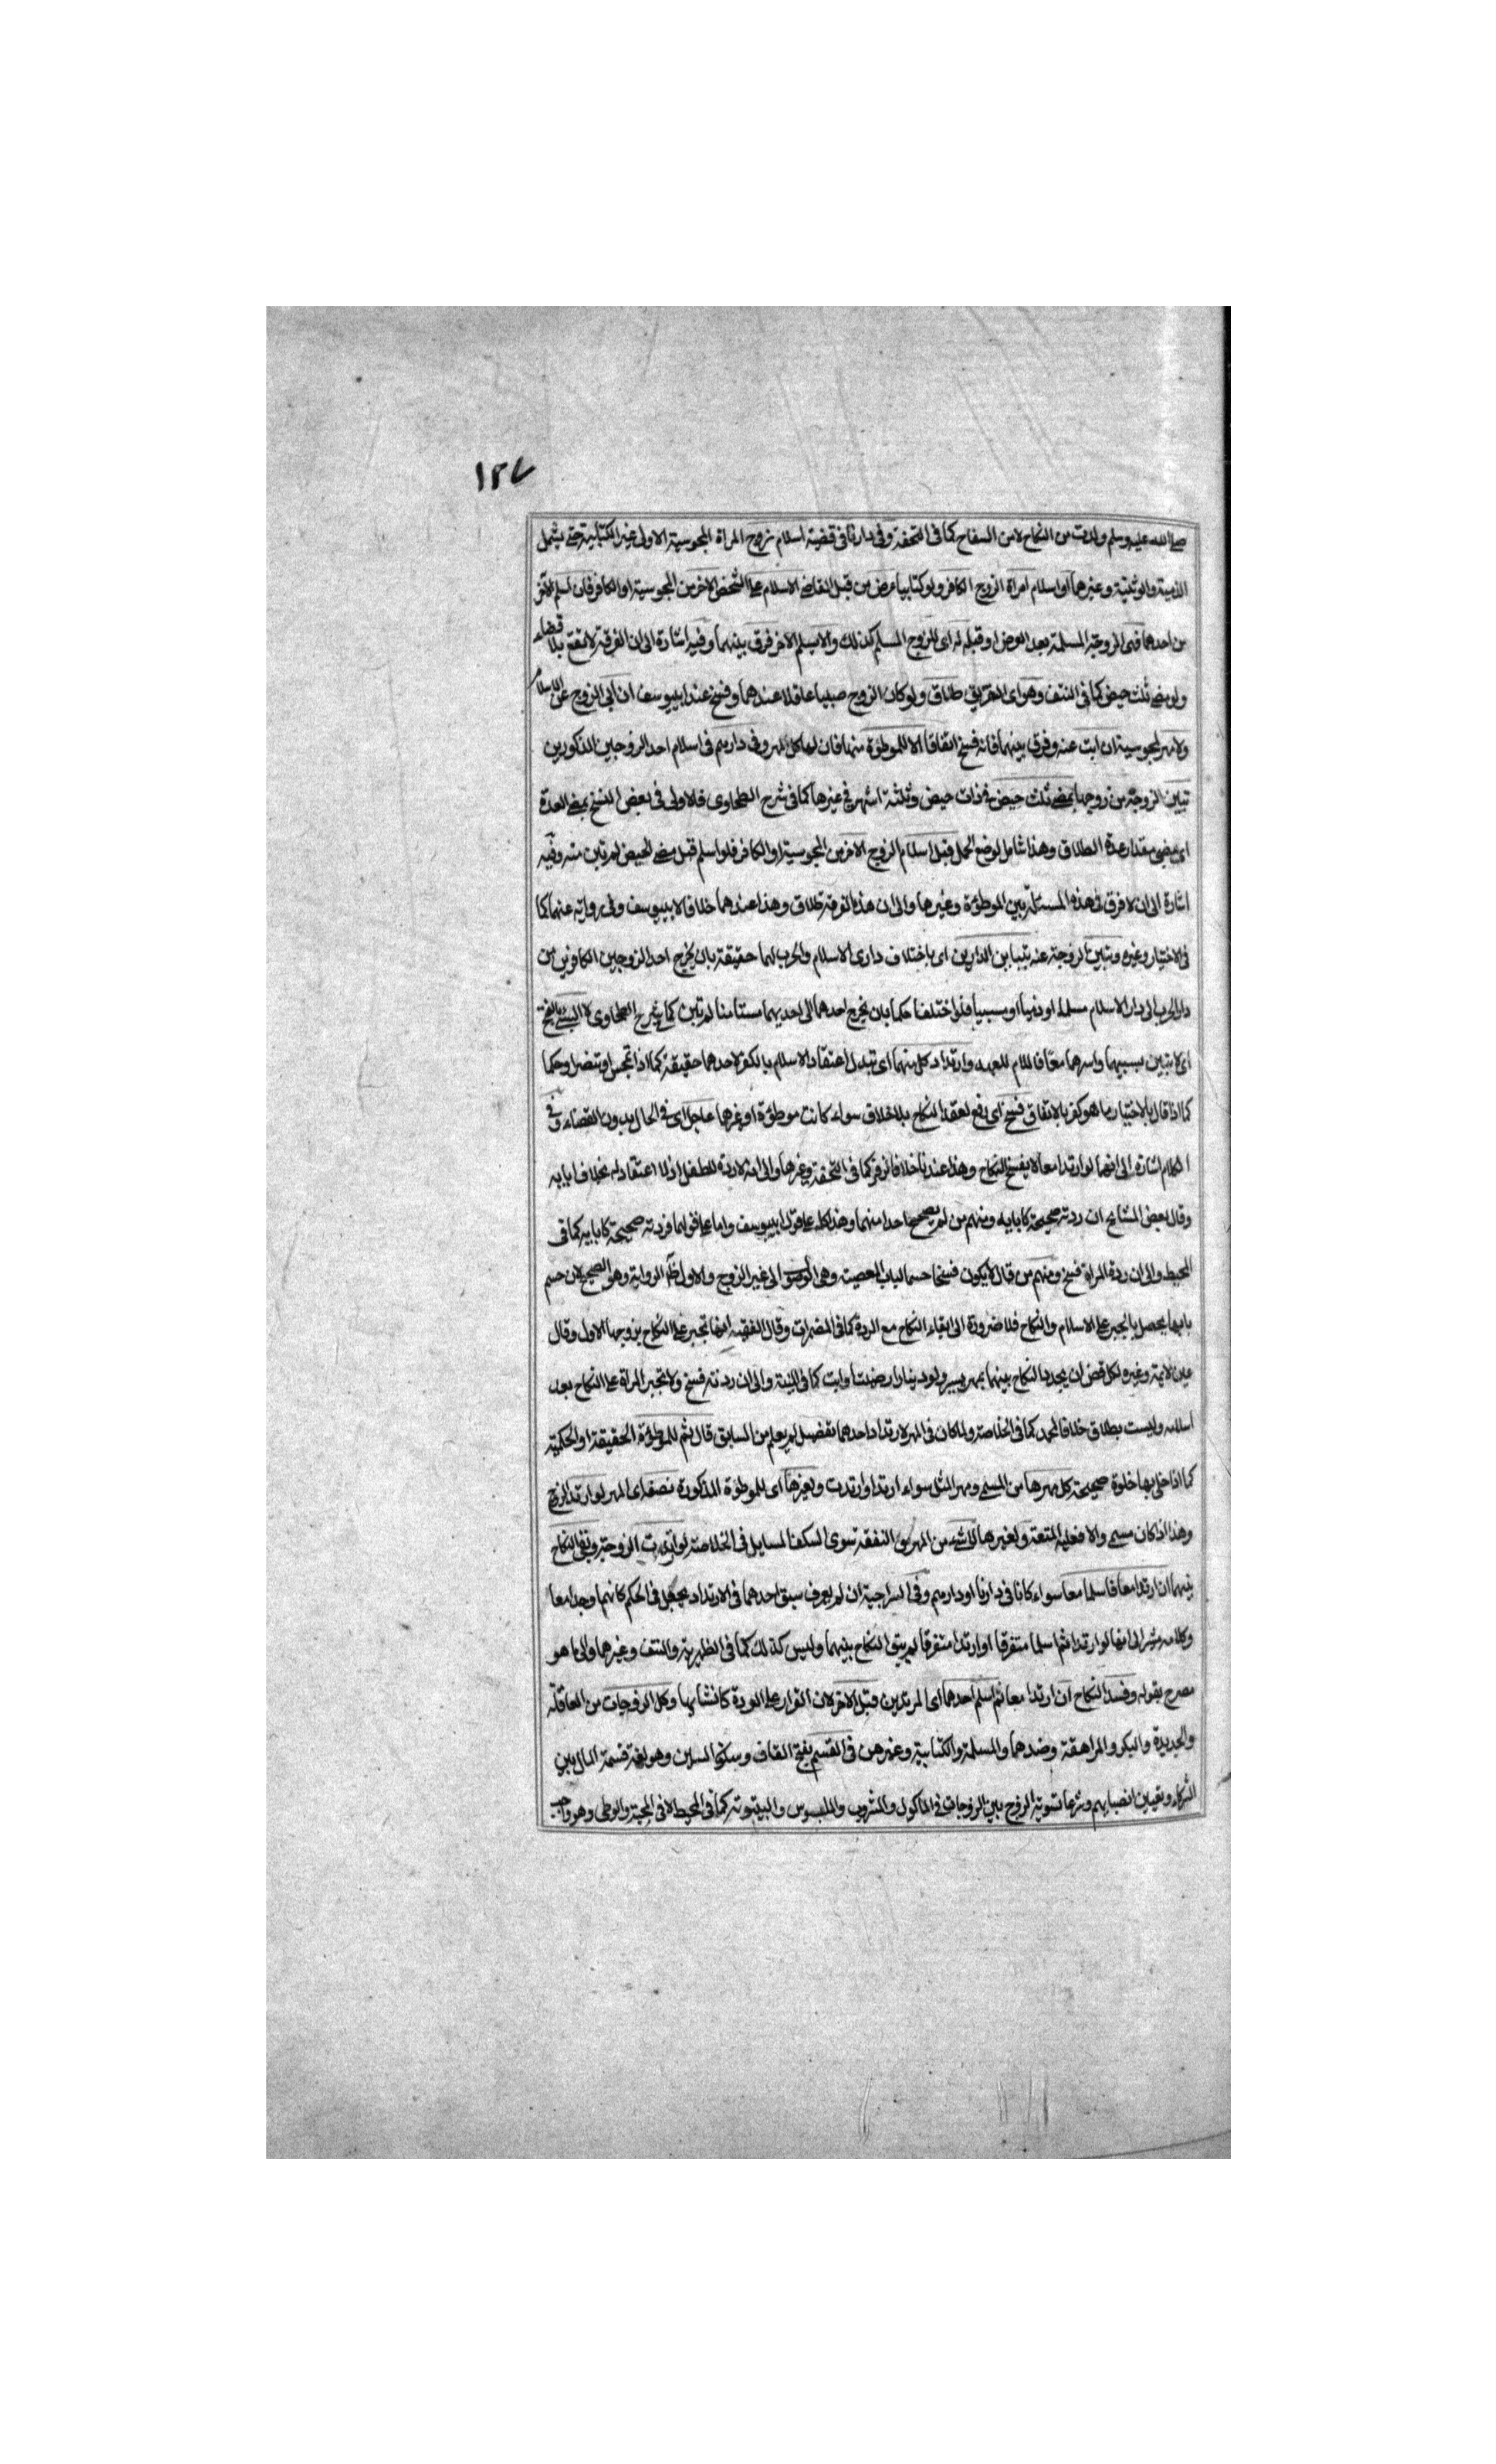 ١٢٧
صلى الله عليه وسلم ولدت من النكاح لا من السفاح كما في التحفة وفي دارنا في قضية اسلام زوج المراة المجوسية الاولى غير الكتابية حتى يشمل
الذمية والوثنية وغيرهما او اسلام امراة الزوج الكافر ولو كتابيا عرض من قبل القاضي الاسلام على الشخص الاخر من المجوسية او الكافر فان اسلم الاخر
من احدهما فهي الزوجة المسلمة بعد العرض او قبله له اى للزوج المسلم كذلك والا يسلم الاخر فرق بينهما وفيه اشارة الى ان الفرقة لا تقع بلا قضاء
ولو مضى ثلث حيض كما في النتف وهو اى التفريق طلاق ولو كان الزوج صبيا عاقلا عندهما وفسخ عند ابييوسف ان ابى الزوج عن الاسلام
ولا مهر لمجوسية ان ابت عنه وفرق بينهما فانه فسخ اتفاقا الا للموطؤة منهما فان لها كل المهر وفي دارهم في اسلام احد الزوجين المذكورين
تبين الزوجة من زوجها بمضى ثلث حيض في ذات حيض وثلثة اشهر في غيرها كما في شرح الطحاوى فالاولى في بعض النسخ بمضى العدة
اى بمضى مقدار عدة الطلاق وهذا شامل لوضع الحمل قبل اسلام الزوج الاخر من المجوسية او الكافر فلو اسلم قبل مضى الحيض لم تبن منه وفيه
اشارة الى ان لا فرق في هذه المسئلة بين الموطؤة وغيرها والى ان هذه الفرقة طلاق وهذا عندهما خلافا لابييوسف وفي رواية عنهما كما
في الاختيار وغيره وتبين الزوجة عنه بتباين الدارين اى باختلاف دارى الاسلام والحرب لهما حقيقة بان يخرج احد الزوجين الكافرين من
دار الحرب الى دار الاسلام مسلما او ذميا او مسبيا فلو اختلفا حكما بان يخرج احدهما الى احديهما مستامنا لم تبن كما في شرح الطحاوى لا السبى بالفتح
اى لا تبين بسبيهما واسرهما معا فاللام للعهد وارتداد كل منهما اى تبدل اعتقاد الاسلام بالكفر لاحدهما حقيقة كما اذا تمجس او تنصر او حكما
كما اذا قال بالاختيار ما هو كفر بالاتفاق فسخ اى رفع لعقد النكاح بلا خلاف سواء كانت موطؤة او غيرها عاجل اى في الحال بدون القضاء وفي
الكلام اشارة الى انهما لو ارتدا معا لا يفسخ النكاح وهذا عندنا خلافا لزفر كما في التحفة وغيرها والى انه لا ردة للطفل اذ لا اعتقاد له بخلاف ابايه
وقال بعض المشايخ ان ردته صحيحة كابايه ومنهم من لم يصحح احدا منهما وهذا كله على قول ابييوسف واما على قولهما فردته صحيحة كابايه كما في
المحيط والى ان ردة المراة فسخ ومنهم من قال لا يكون فسخا حسما لباب المعصية وهي الوصول الى غير الزوج والاول ظاهر الرواية وهو الصحيح لان حسم
بابها يحصل بالجبر على الاسلام والنكاح فلا ضرورة الى ابقاء النكاح مع الردة كما في المضمرات وقال الفقيه انها تجبر على النكاح بزوجها الاول وقال
عين الايمة وغيره لكل قاض ان يجدد النكاح بينهما بمهر يسير ولو دينارا رضيت او ابت كما في المنية والى ان ردته فسخ ولا تجبر المراة على النكاح بعد
اسلامه وليست بطلاق خلافا لمحمد كما في الخلاصة ولما كان في المهر لارتداد احدهما تفصيل لم يعلم من السابق قال ثم للموطؤة الحقيقة او الحكمية
كما اذا خلى بها خلوة صحيحة كل مهرها من المسمى ومهر المثل سواء ارتد او ارتدت ولغيرها اى للموطؤة المذكورة نصفه اى المهر لو ارتد الزوج
وهذا اذا كان مسمى والا فعليه المتعة ولغيرها لا شىء من المهر و النفقة سوى السكنى لمسايل في الخلاصة لو ارتدت الزوجة وبقى النكاح
بينهما ان ارتدا معا فاسلما معا سواء كانا في دارنا او دارهم وفي السراجية ان لم يعرف سبق احدهما في الارتداد يجعل في الحكم كانهما وجدا معا
وكلامه مشير الى انهما لو ارتدا ثم اسلما متفرقا او ارتدا متفرقا لم يبق النكاح بينهما وليس كذلك كما في الظهيرية والنتف وغيرهما والى ما هو
مصرح بقوله وفسد النكاح ان ارتدا معا ثم اسلم احدهما اى المرتدين قبل الاخر لان القرار على الردة كانشائها وكل الزوجات من العاقلة
والجديدة والبكر والمراهقة وضدهما والمسلمة والكتابية وغيرهن في القسم بفتح القاف وسكون السين وهو لغة قسمة المال بين
الشركاء وتعيين انصبايهم وشرعا تسوية الزوج بين الزوجات في الماكول والمشروب والملبوس والبيتوتة كما في المحيط لا في المحبة والوطى وهو واجب